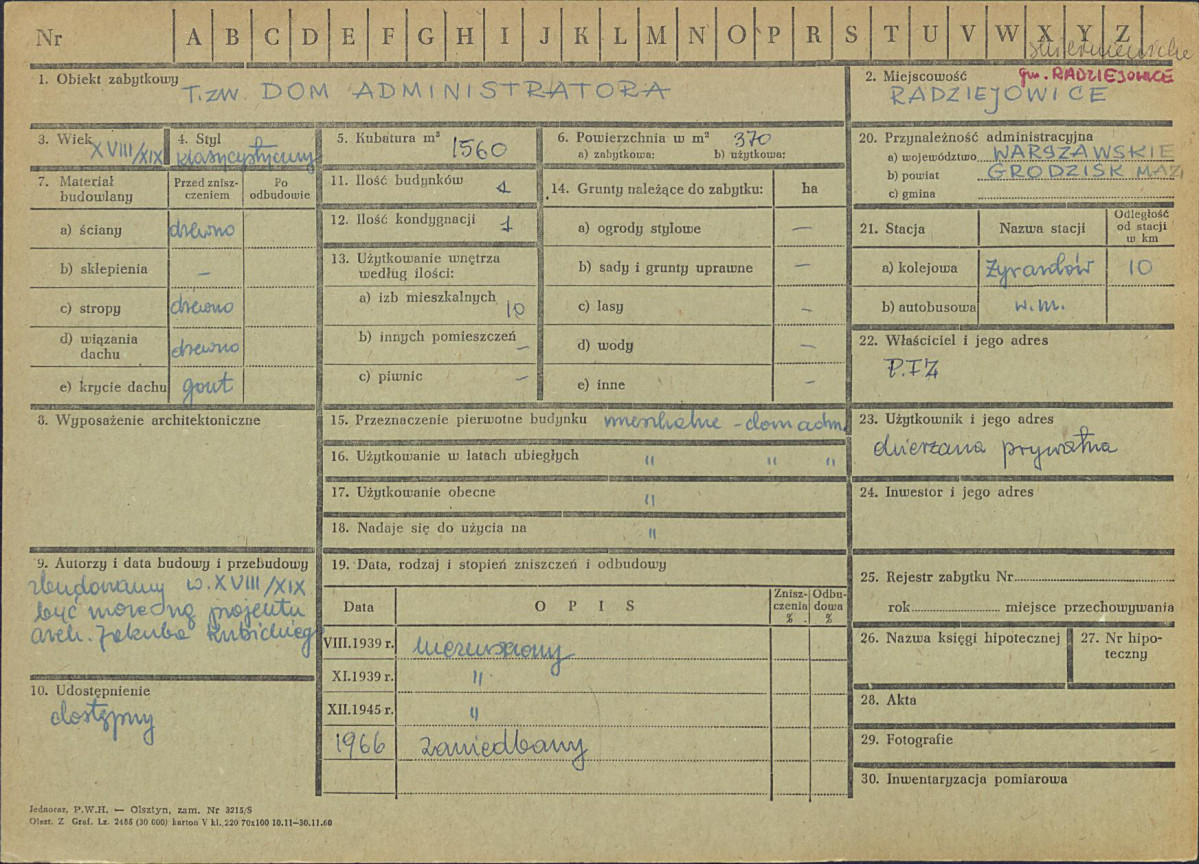 Nr A B C D E F G H I J K L M N O P R S T U V W X Y Z
1. Obiekt zabytkowy
T.ZW. DOM ADMINISTRATORA
2. Miejscowość gm. RADZIEJOWICE
RADZIEJOWICE
3. Wiek XVIII/XIX
4. Styl
klasycystyczny
5. Kubatura m³ 1560
6. Powierzchnia w m² 370
a) zabytkowa: b) użytkowa:
20. Przynależność administracyjna
a) województwo WARSZAWSKIE
b) powiat GRODZISK MAZ
c) gmina
7. Materiał budowlany
Przed zniszczeniem
Po odbudowie
a) ściany drewno
b) sklepienia –
c) stropy drewno
d) wiązania dachu drewno
e) krycie dachu gont
11. Ilość budynków 1
12. Ilość kondygnacji 1
13. Użytkowanie wnętrza
według ilości:
a) izb mieszkalnych 10
b) innych pomieszczeń –
c) piwnic –
14. Grunty należące do zabytku: ha
a) ogrody stylowe –
b) sady i grunty uprawne –
c) lasy –
d) wody –
e) inne –
21. Stacja
Nazwa stacji
Odległość
od stacji
w km
a) kolejowa Żyrardów 10
b) autobusowa w.m.
22. Właściciel i jego adres
P.F.Z
8. Wyposażenie architektoniczne
15. Przeznaczenie pierwotne budynku mieszkalne - dom adm.
16. Użytkowanie w latach ubiegłych " " "
17. Użytkowanie obecne "
18. Nadaje się do użycia na "
23. Użytkownik i jego adres
dzierżawa prywatna
24. Inwestor i jego adres
9. Autorzy i data budowy i przebudowy
zbudowany w. XVIII/XIX
być może wg projektu
arch. Jakuba Kubickiego
10. Udostępnienie
dostępny
19. Data, rodzaj i stopień zniszczeń i odbudowy
Data
O P I S
Zniszczenia %
Odbudowa %
VIII.1939 r. nieruszony
XI.1939 r. "
XII.1945 r. "
1966 zaniedbany
25. Rejestr zabytku Nr
rok miejsce przechowywania
26. Nazwa księgi hipotecznej
27. Nr hipoteczny
28. Akta
29. Fotografie
30. Inwentaryzacja pomiarowa
Jednoraz. P.W.H. — Olsztyn, zam. Nr 3215/S
Olszt. Z. Graf. Lz. 2485 (30 000) karton V kl. 220 70x100 10.11—30.11.60